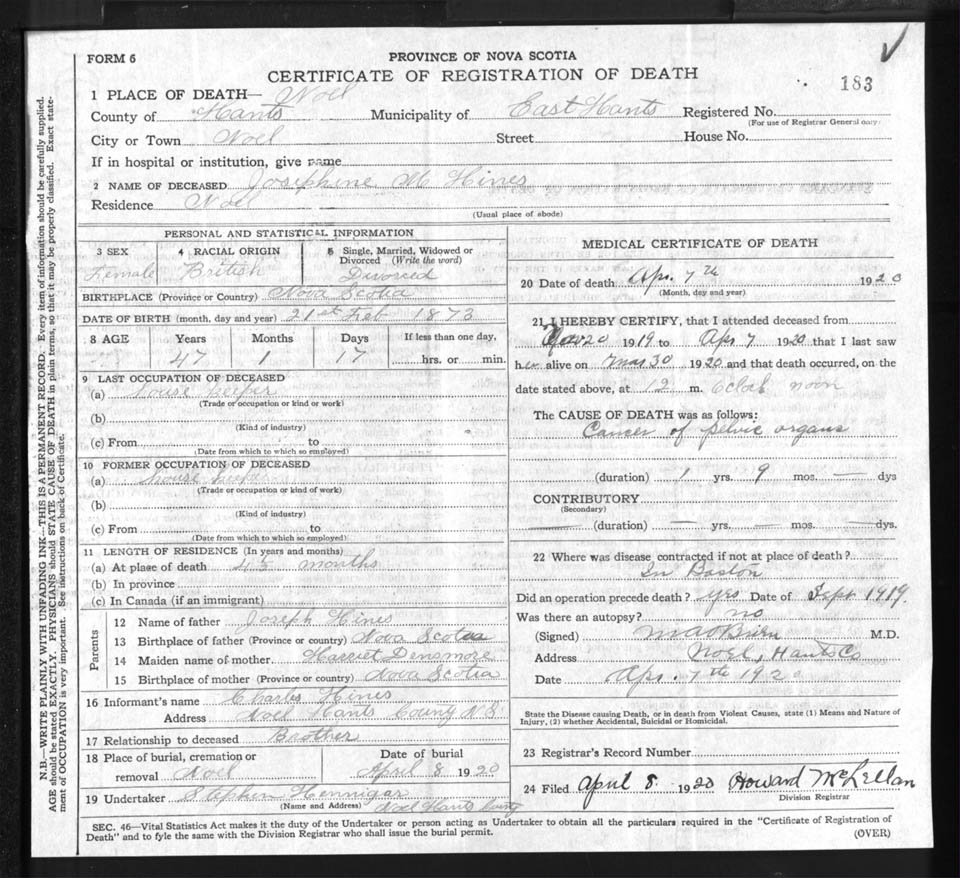 FORM 6
PROVINCE OF NOVA SCOTIA
CERTIFICATE OF REGISTRATION OF DEATH
183
1 PLACE OF DEATH— Noel
County of Hants Municipality of East Hants Registered No.
(For use of Registrar General only)
City or Town Noel Street House No.
If in hospital or institution, give name
2 NAME OF DECEASED Josephine M Hines
Residence Noel
(Usual place of abode)
N.B.—WRITE PLAINLY WITH UNFADING INK—THIS IS A PERMANENT RECORD. Every item of information should be carefully supplied.
AGE should be stated EXACTLY. PHYSICIANS should STATE CAUSE OF DEATH in plain terms, so that it may be properly classified. Exact state-
ment of OCCUPATION is very important. See instructions on back of Certificate.
PERSONAL AND STATISTICAL INFORMATION
3 SEX
Female
4 RACIAL ORIGIN
British
5 Single, Married, Widowed or
Divorced (Write the word)
Divorced
BIRTHPLACE (Province or Country) Nova Scotia
DATE OF BIRTH (month, day and year) 21st Feb 1873
8 AGE Years Months Days If less than one day,
47 1 17 hrs. or min.
9 LAST OCCUPATION OF DECEASED
(a) House keeper
(Trade or occupation or kind of work)
(b)
(Kind of industry)
(c) From to
(Date from which to which so employed)
10 FORMER OCCUPATION OF DECEASED
(a) House keeper
(Trade or occupation or kind of work)
(b)
(Kind of industry)
(c) From to
(Date from which to which so employed)
11 LENGTH OF RESIDENCE (In years and months)
(a) At place of death months
(b) In province
(c) In Canada (if an immigrant)
Parents
12 Name of father Joseph Hines
13 Birthplace of father (Province or country) Nova Scotia
14 Maiden name of mother Harriet Densmore
15 Birthplace of mother (Province or country) Nova Scotia
16 Informant's name Charles Hines
Address Noel Hants County N S
17 Relationship to deceased Brother
18 Place of burial, cremation or
removal Noel
Date of burial
April 8 1920
19 Undertaker Stephen Hennigar
(Name and Address) Noel Hants County
MEDICAL CERTIFICATE OF DEATH
20 Date of death Apr. 7th 1920
(Month, day and year)
21 I HEREBY CERTIFY, that I attended deceased from
20 1919 to Apr 7 1920 that I last saw
her alive on Mar 30 1920 and that death occurred, on the
date stated above, at 12 m. o'clock noon
The CAUSE OF DEATH was as follows:
Cancer of pelvic organs
(duration) 1 yrs. 9 mos. — dys
CONTRIBUTORY
(Secondary)
— (duration) — yrs. — mos. — dys.
22 Where was disease contracted if not at place of death?
In Boston
Did an operation precede death? yes Date of Sept 1919.
Was there an autopsy? no
(Signed) M.D.
Address Noel, Hants Co
Date Apr. 7th 1920
State the Disease causing Death, or in death from Violent Causes, state (1) Means and Nature of
Injury, (2) whether Accidental, Suicidal or Homicidal.
23 Registrar's Record Number
24 Filed April 8 1920 Howard McLellan
Division Registrar
SEC. 46—Vital Statistics Act makes it the duty of the Undertaker or person acting as Undertaker to obtain all the particulars required in the "Certificate of Registration of
Death" and to fyle the same with the Division Registrar who shall issue the burial permit.
(OVER)